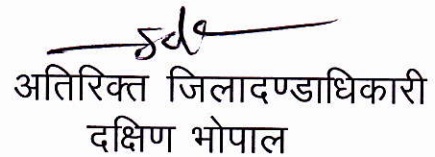 sd
अतिरिक्त जिलादण्डाधिकारी
दक्षिण भोपाल